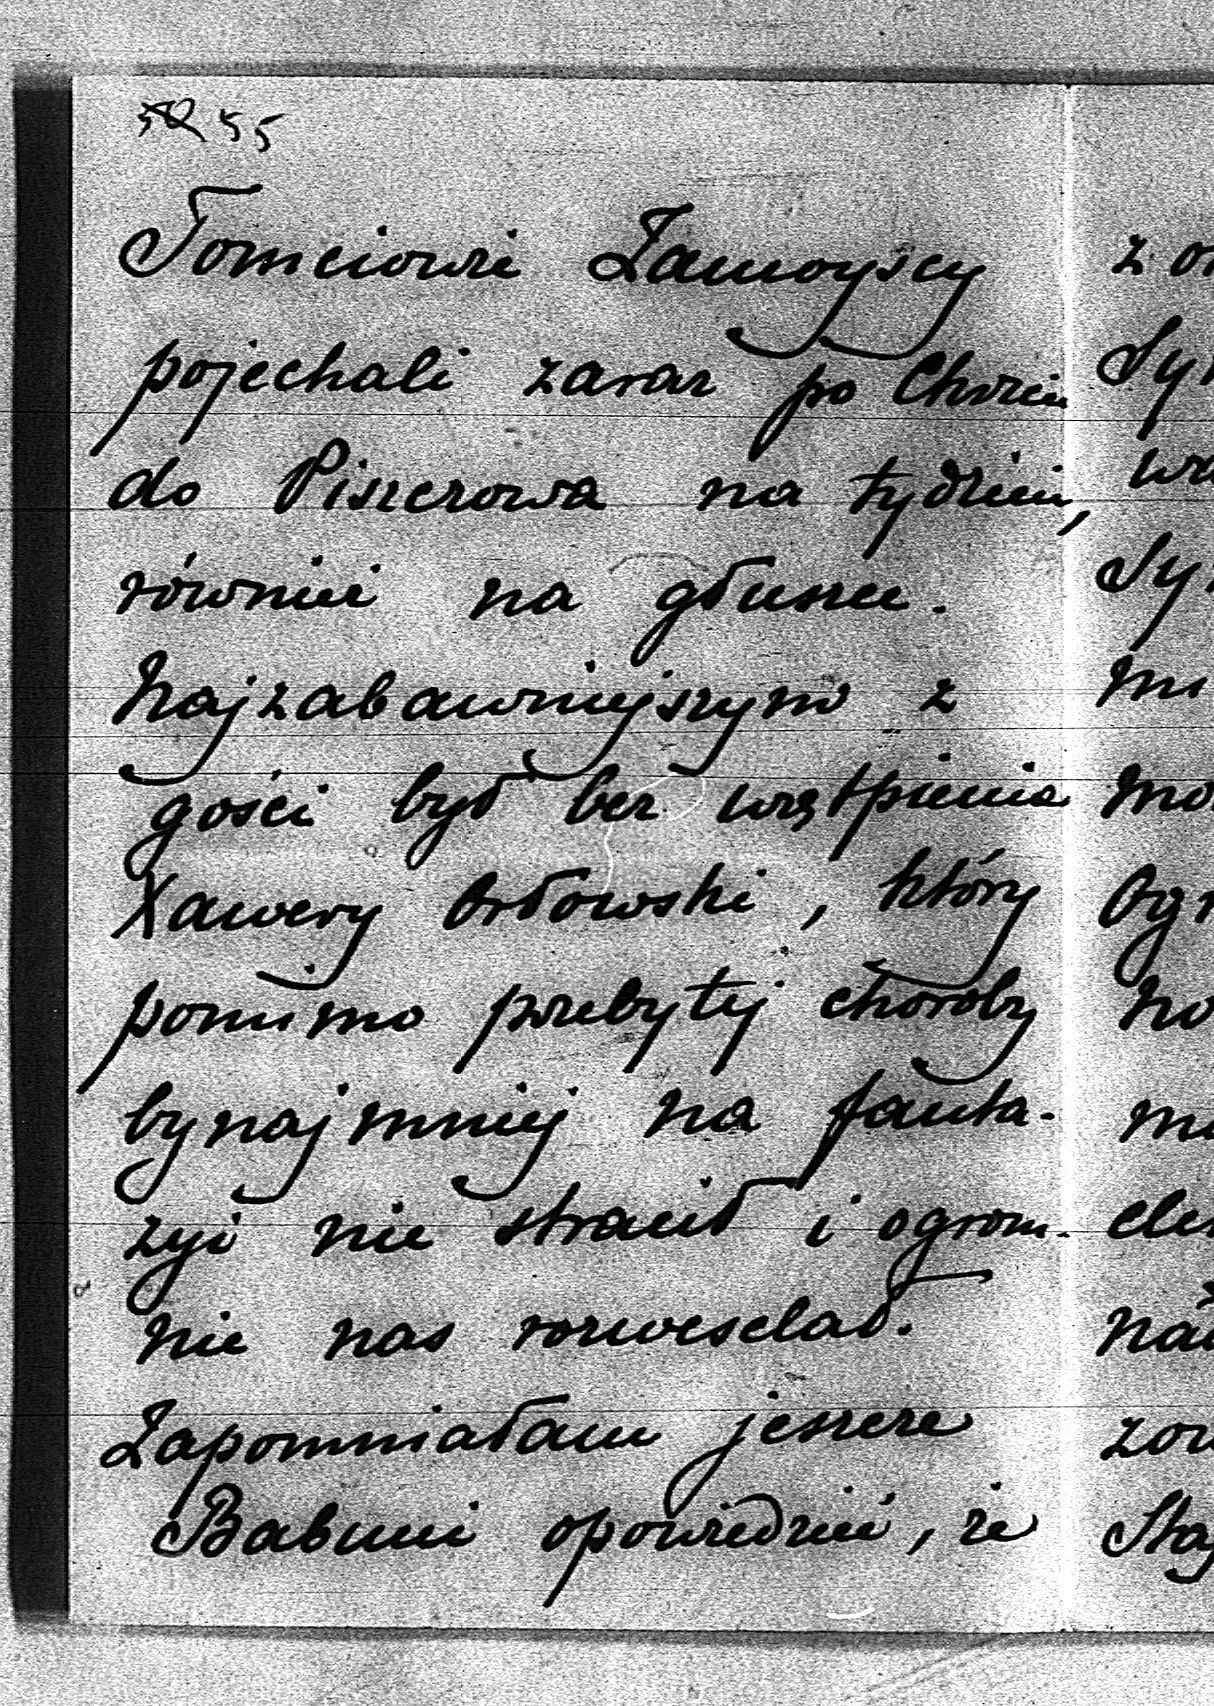 55
Tomciowie Zamoyscy
pojechali zaraz po Chrzcie
do Piszczowa na tydzień,
również na głuszce.
Najzabawniejszym z
gości był bez wątpienia
Xawery Orłowski, który
pomimo przebytej choroby
bynajmniej na fanta-
zyi nie stracił i ogrom-
nie nas rozweselał.
Zapomniałam jeszcze
Babuni opowiedzieć, że